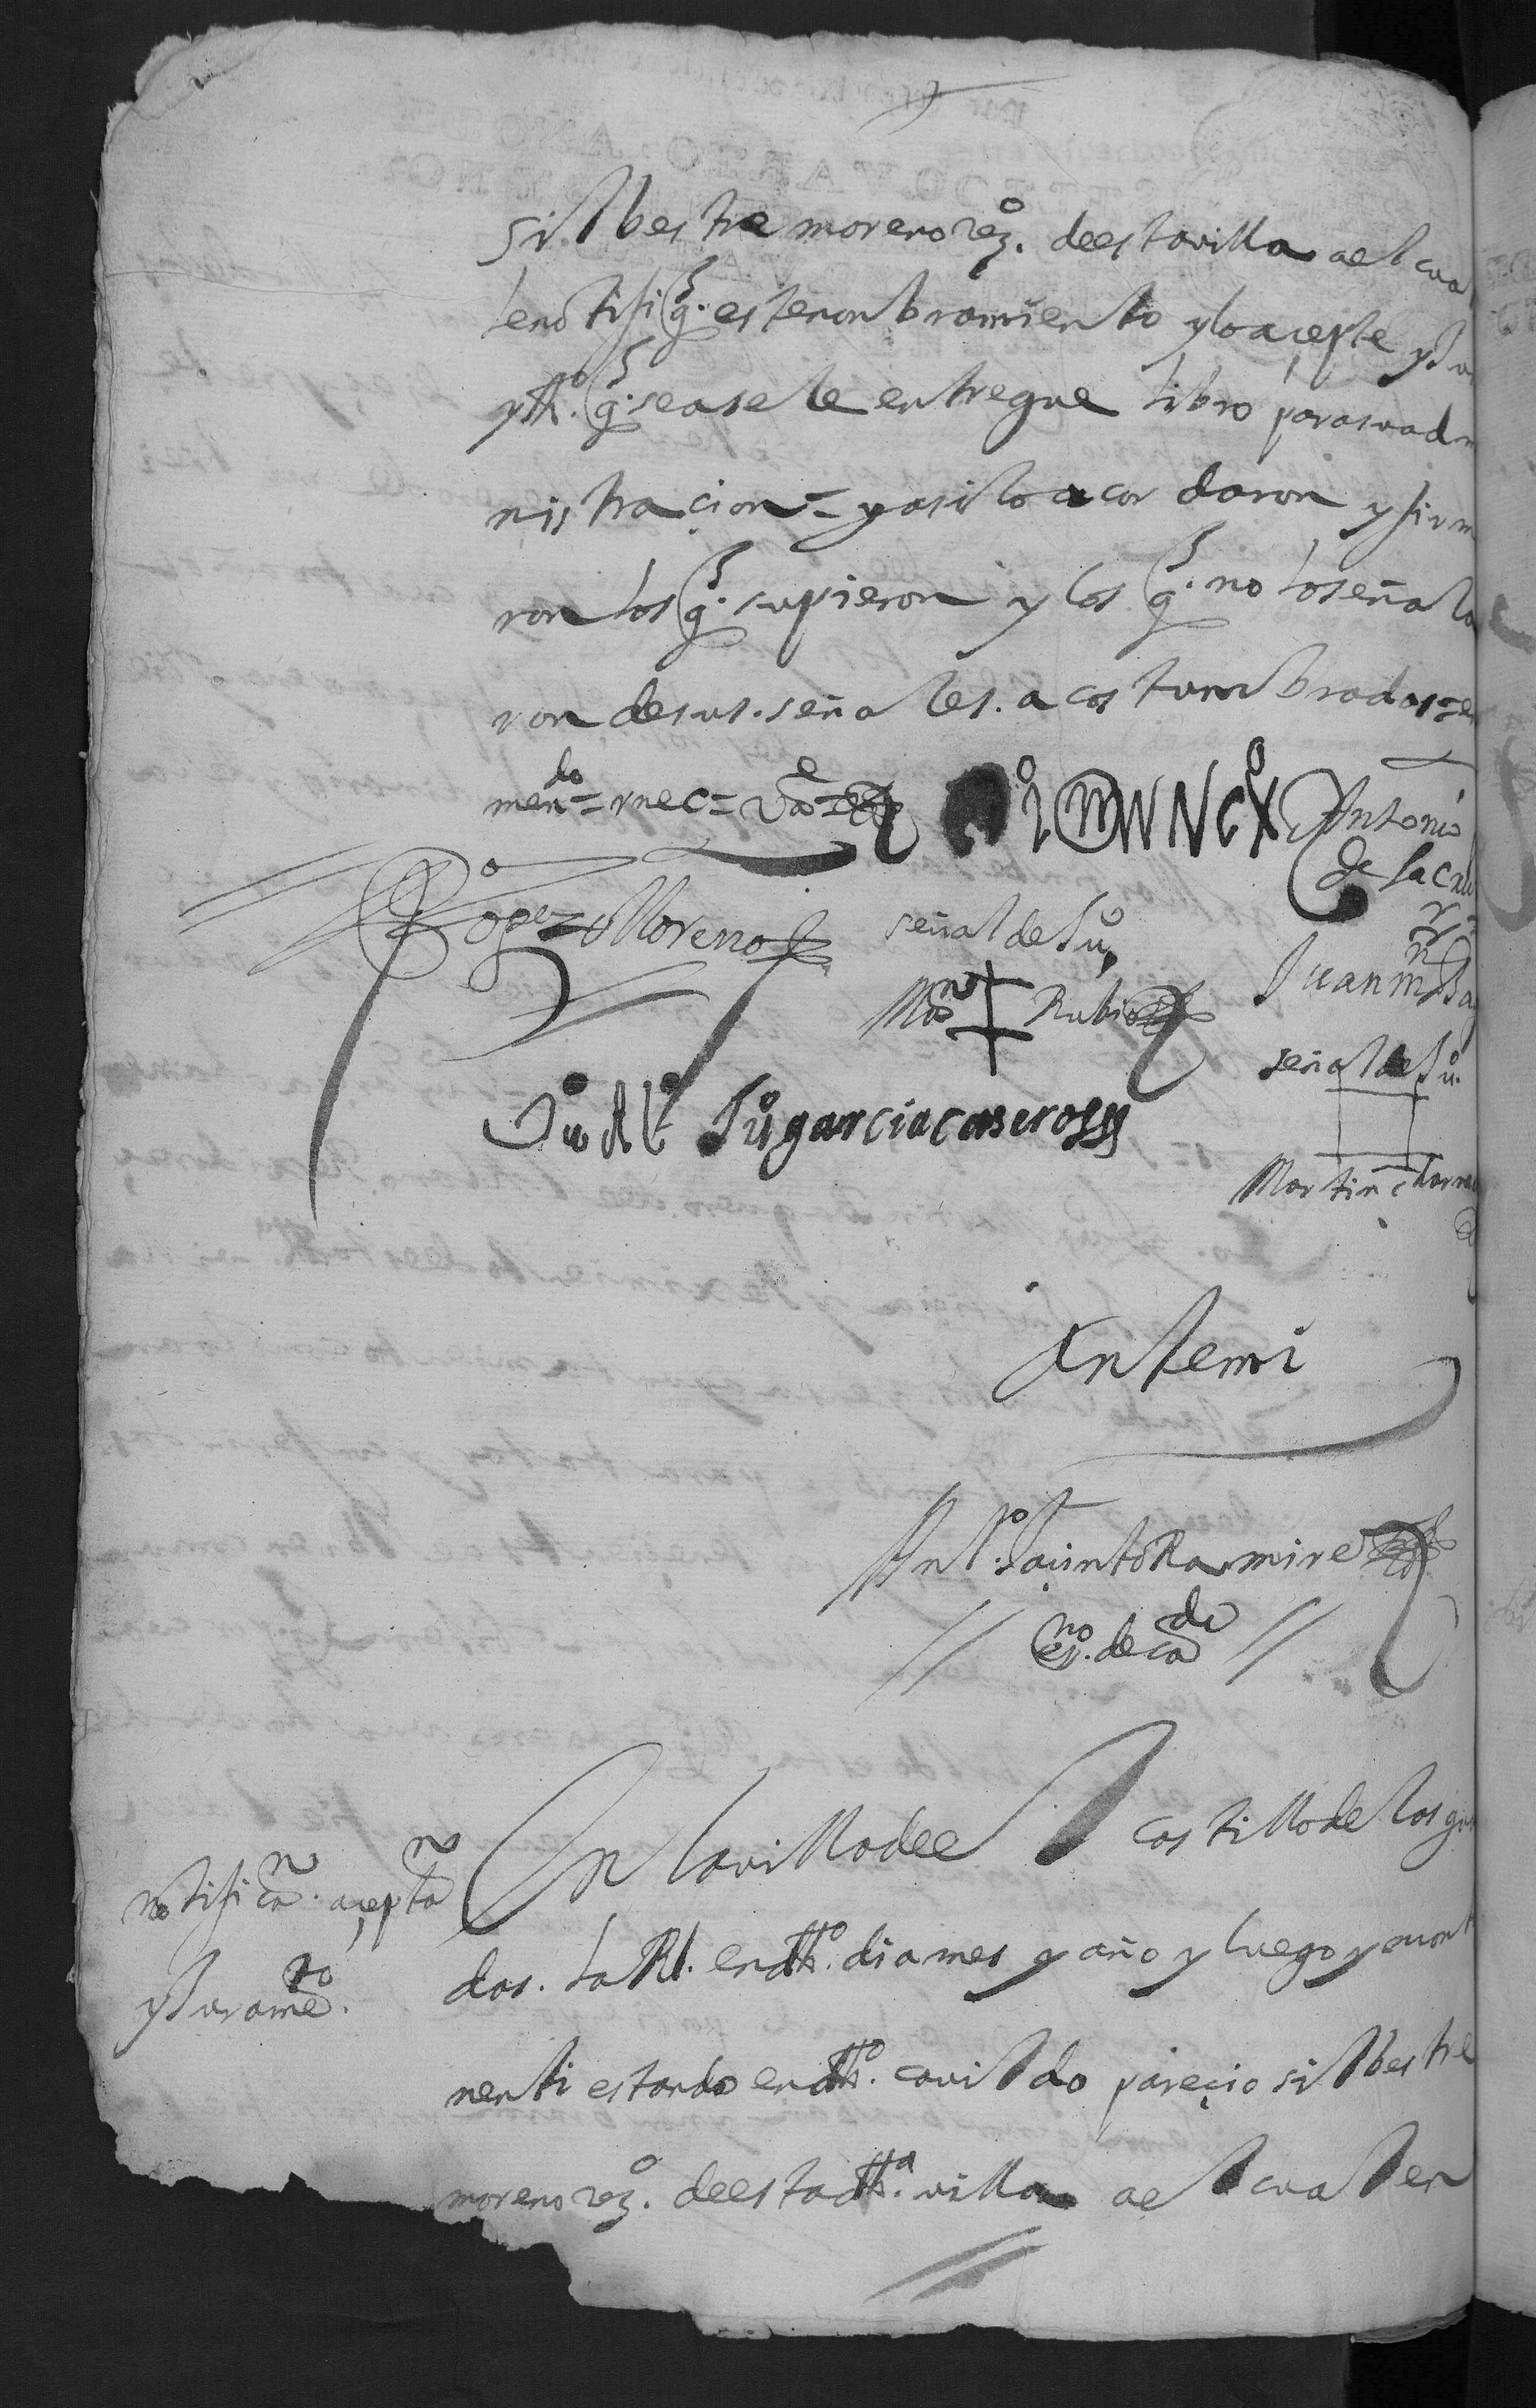 silbestre moreno vezº. de esta villa ael cua
le notifiq. este nonbramiento y lo acepte y Ju
y fho q. sea se le entregue libro para su adm
nistracion = y asi lo acordaron y firm
ron los q. supieron y los q. no lo señala
ron de sus. señales. acostunbradas = en
mendo = r nec = vae
Antonio
de la cru
Lopez Moreno
señal de Juº
Mnº Rubio
Juan
señal de Juº
Juº garcia caseros
Martin
Antemi
Antº. Jacinto Ramirez
esno. de cado
notificaon. aceptaon
y Juramento.
En la villa de el castillo de las gu
das. la Rl. en dho. dia mes y año y luego yncont
nenti estando en dho. cavildo pareçio silbestre
moreno vezº. de esta dha. villa ael cual en